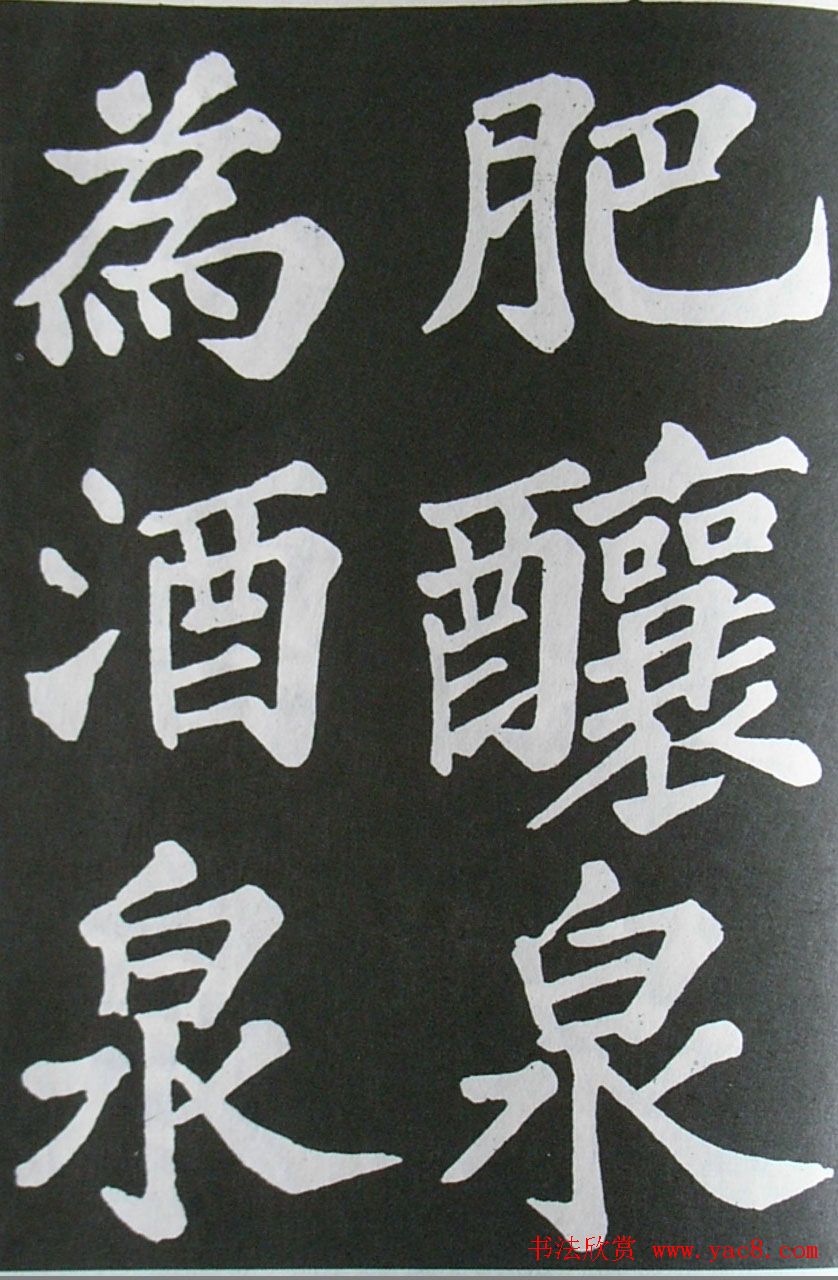 肥釀泉
為酒泉
书法欣赏 www.yac8.com